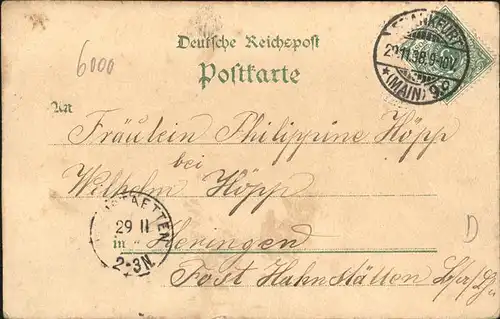 6000
Deutsche Reichspost
Postkarte
FRANKFURT
29.11.98. 9-10V.
* (MAIN) 9 *
An
Fräulein Philippine Höpp
bei
Wilhelm Höpp
TAETTEN
29 11
2-3N.
in Heringen
D
Post Hahnstätten